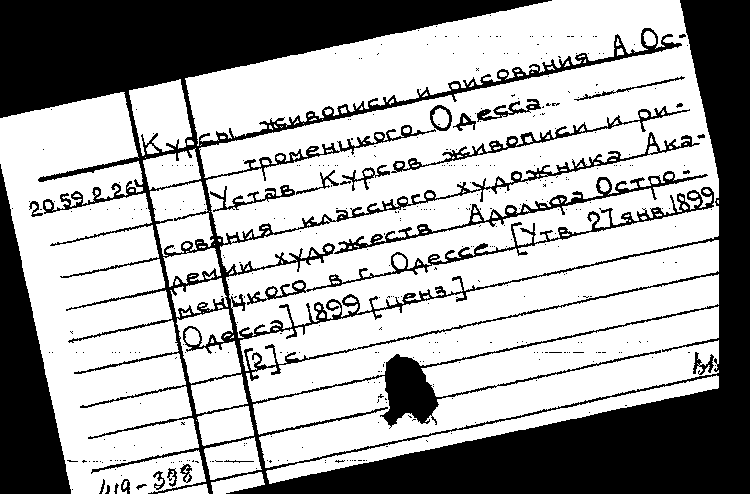 Курсы живописи и рисования А. Ос-
троменцкого. Одесса
20.59.2.264.
Устав Курсов живописи и ри-
сования классного художника Ака-
демии художеств Адольфа Остро-
менцкого в г. Одессе. [Утв. 27 янв. 1899.
Одесса], 1899 [ценз.].
[2] с.
419-398